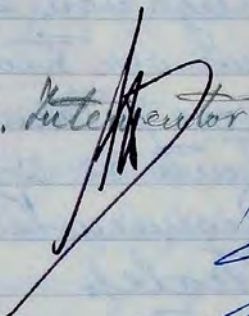 . Interventor